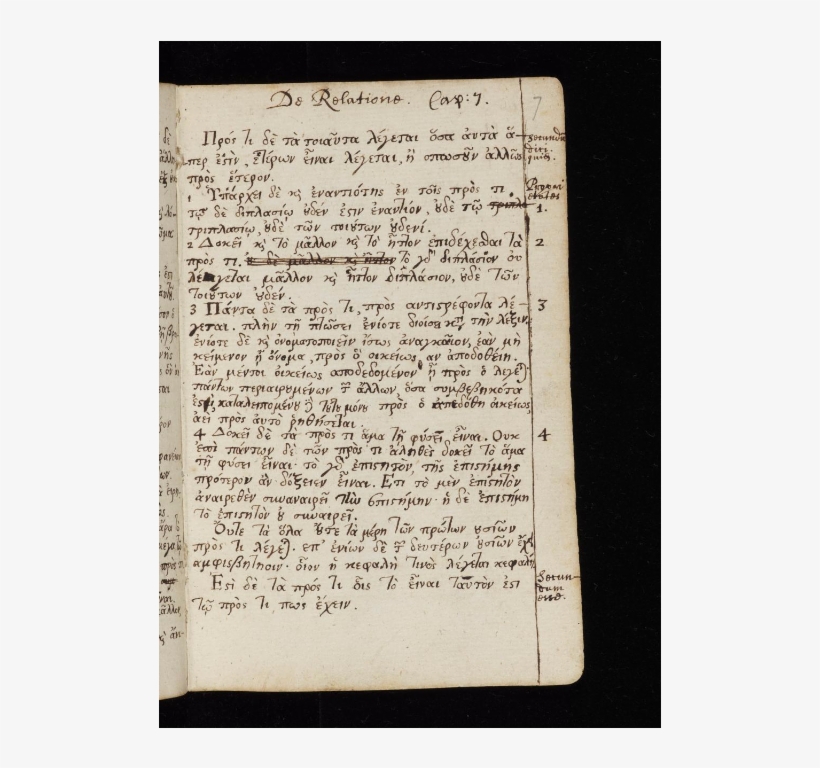 De Relatione. Cap: 7.
7
Πρός τι δὲ τὰ τοιαῦτα λέγεται ὅσα ἀυτὰ ἅ-
περ ἐστὶν, ἑτέρων εἶναι λέγεται, ἢ ὁπωσοῦν ἄλλως
πρὸς ἕτερον.
secundũ
dici.
Proprietates
1 Ὑπάρχει δὲ κỳ ἐναντιότης ἐν τοῖς πρὸς τι.
τῷ δὲ διπλασίῳ ȣ̓δέν ἐστιν ἐναντίον, ȣ̓δὲ τῷ
1.
τριπλασίῳ, ȣ̓δὲ τῶν τοιȣ́των ȣ̓δενί.
2 Δοκεῖ κỳ τὸ μᾶλλον κỳ τὸ ἧττον ἐπιδέχεσθαι τὰ
2
πρὸς τι. τὸ γὸ διπλάσιον ȣ̓
λέγεται μᾶλλον κỳ ἧττον διπλάσιον, ȣ̓δὲ τῶν
τοιȣ́των ȣ̓δέν.
3 Πάντα δὲ τὰ πρὸς τι, πρὸς αντιστρέφοντα λέ-
3
γεται. πλὴν τῇ πτώσει ἐνίοτε διοίσει κỳ τὴν λέξιν.
ἐνίοτε δὲ κỳ ὀνοματοποιεῖν ἴσως ἀναγκαῖον, ἐὰν μὴ
κείμενον ᾖ ὄνομα, πρὸς ὃ οἰκείως αν ἀποδοθείη.
Ἐὰν μέντοι οἰκείως αποδεδομένον ᾖ πρὸς ὃ λέγε)
πάντων περιαιρȣμένων τ̃ ἄλλων, ὅσα συμβεβηκότα
ἐστι, καταλειπομένȣ τȣ́τȣ μόνȣ πρὸς ὃ ἀπεδόθη οἰκείως
ἀεὶ πρὸς αὐτὸ ῥηθήσεται.
4 Δοκεῖ δὲ τὰ πρὸς τι ἅμα τῇ φύσει εἶναι. Ουκ
4
ἐπὶ πάντων δὲ τῶν πρὸς τι ἀληθὲς δοκεῖ τὸ ἅμα
τῇ φύσει εἶναι· τὸ γὸ ἐπιστητὸν, τῆς ἐπιστήμης
πρότερον ἂν δόξειεν εἶναι. Ετι τὸ μὲν ἐπιστητὸν
ἀναιρεθὲν συναναιρεῖ τὴν ἐπιστήμην· ἡ δὲ ἐπιστήμη
τὸ ἐπιστητὸν ȣ̓ συναιρεῖ.
Οὔτε τὰ ὅλα ȣ̓́τε τὰ μέρη τῶν πρώτων ȣ̓σιῶν
πρὸς τι λέγε). επ' ἐνίων δὲ τ̃ δευτέρων ȣ̓σιῶν ἔχει
αμφισβήτησιν· ὅιον ἡ κεφαλὴ τινὸς λέγεται κεφαλὴ.
Ἐστὶ δὲ τὰ πρός τι ὅις τὸ εἶναι ταὐτὸν ἐστι
τῷ πρὸς τι, πως ἔχειν.
Secun-
dum
esse.